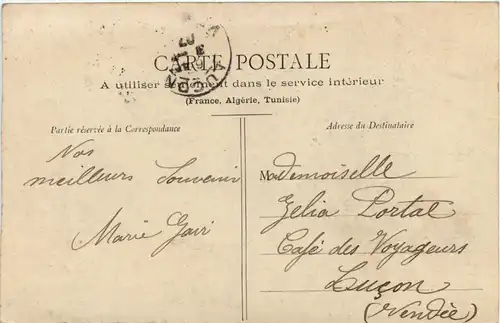 CARTE POSTALE
A utiliser seulement dans le service intérieur
(France, Algérie, Tunisie)
Partie réservée à la Correspondance
Nos
meilleurs Souvenir
Marie
Adresse du Destinataire
Mademoiselle
Zelia Portal
Café des Voyageurs
Luçon
(Vendée)